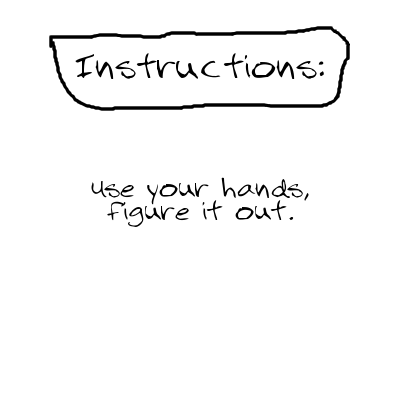 Instructions:
use your hands,
figure it out.